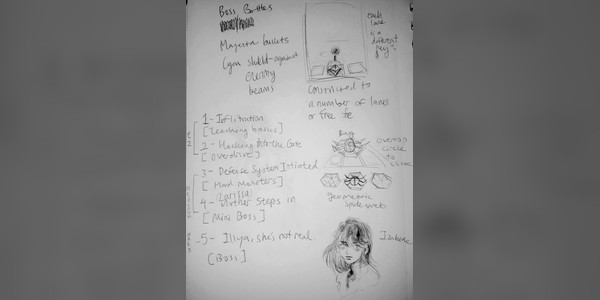 Boss Battles
Magenta bullets
Cyan shield - against
enemy
beams
each
lane
is a
different
key?
constricted to
a number of lanes
or free
1 - Infiltration
[Teaching basics]
2 - Hacking Into the Gate
[Overdrive]
3 - Defense System Initiated
[Mad Monsters]
Larissa
4 - Mother Steps in
[Mini Boss]
5 - Illya, she's not real.
[Boss]
overlap
circle
to
geometric
spider web